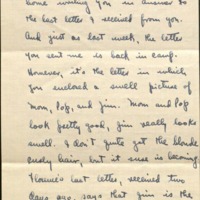 some writing you in answer to
the last letter I received from you.
And just as last week, the letter
you sent me is back in camp.
However, it's the letter in which
you enclosed a swell picture of
Mom, Pop, and Jim. Mom and Pop
look pretty good, Jim really looks
swell. I don't quite get the blonde
curly hair, but it sure is becoming.
last letter, received two
days ago, says that Jim is the